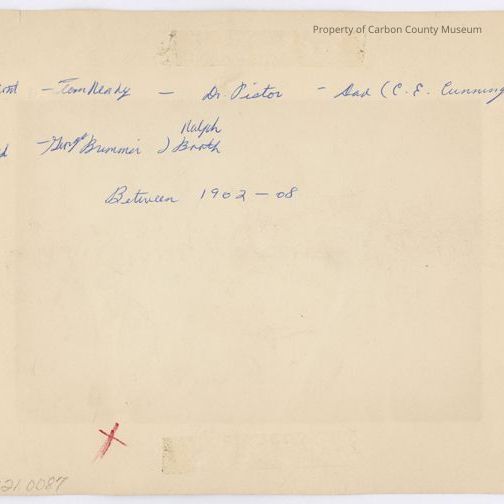 Property of Carbon County Museum
- Tom Ready - Dr. Pistor - Dad (C. E. Cunning
Ralph
- Brimmer ) Barth
Between 1902 - 08
21.0087